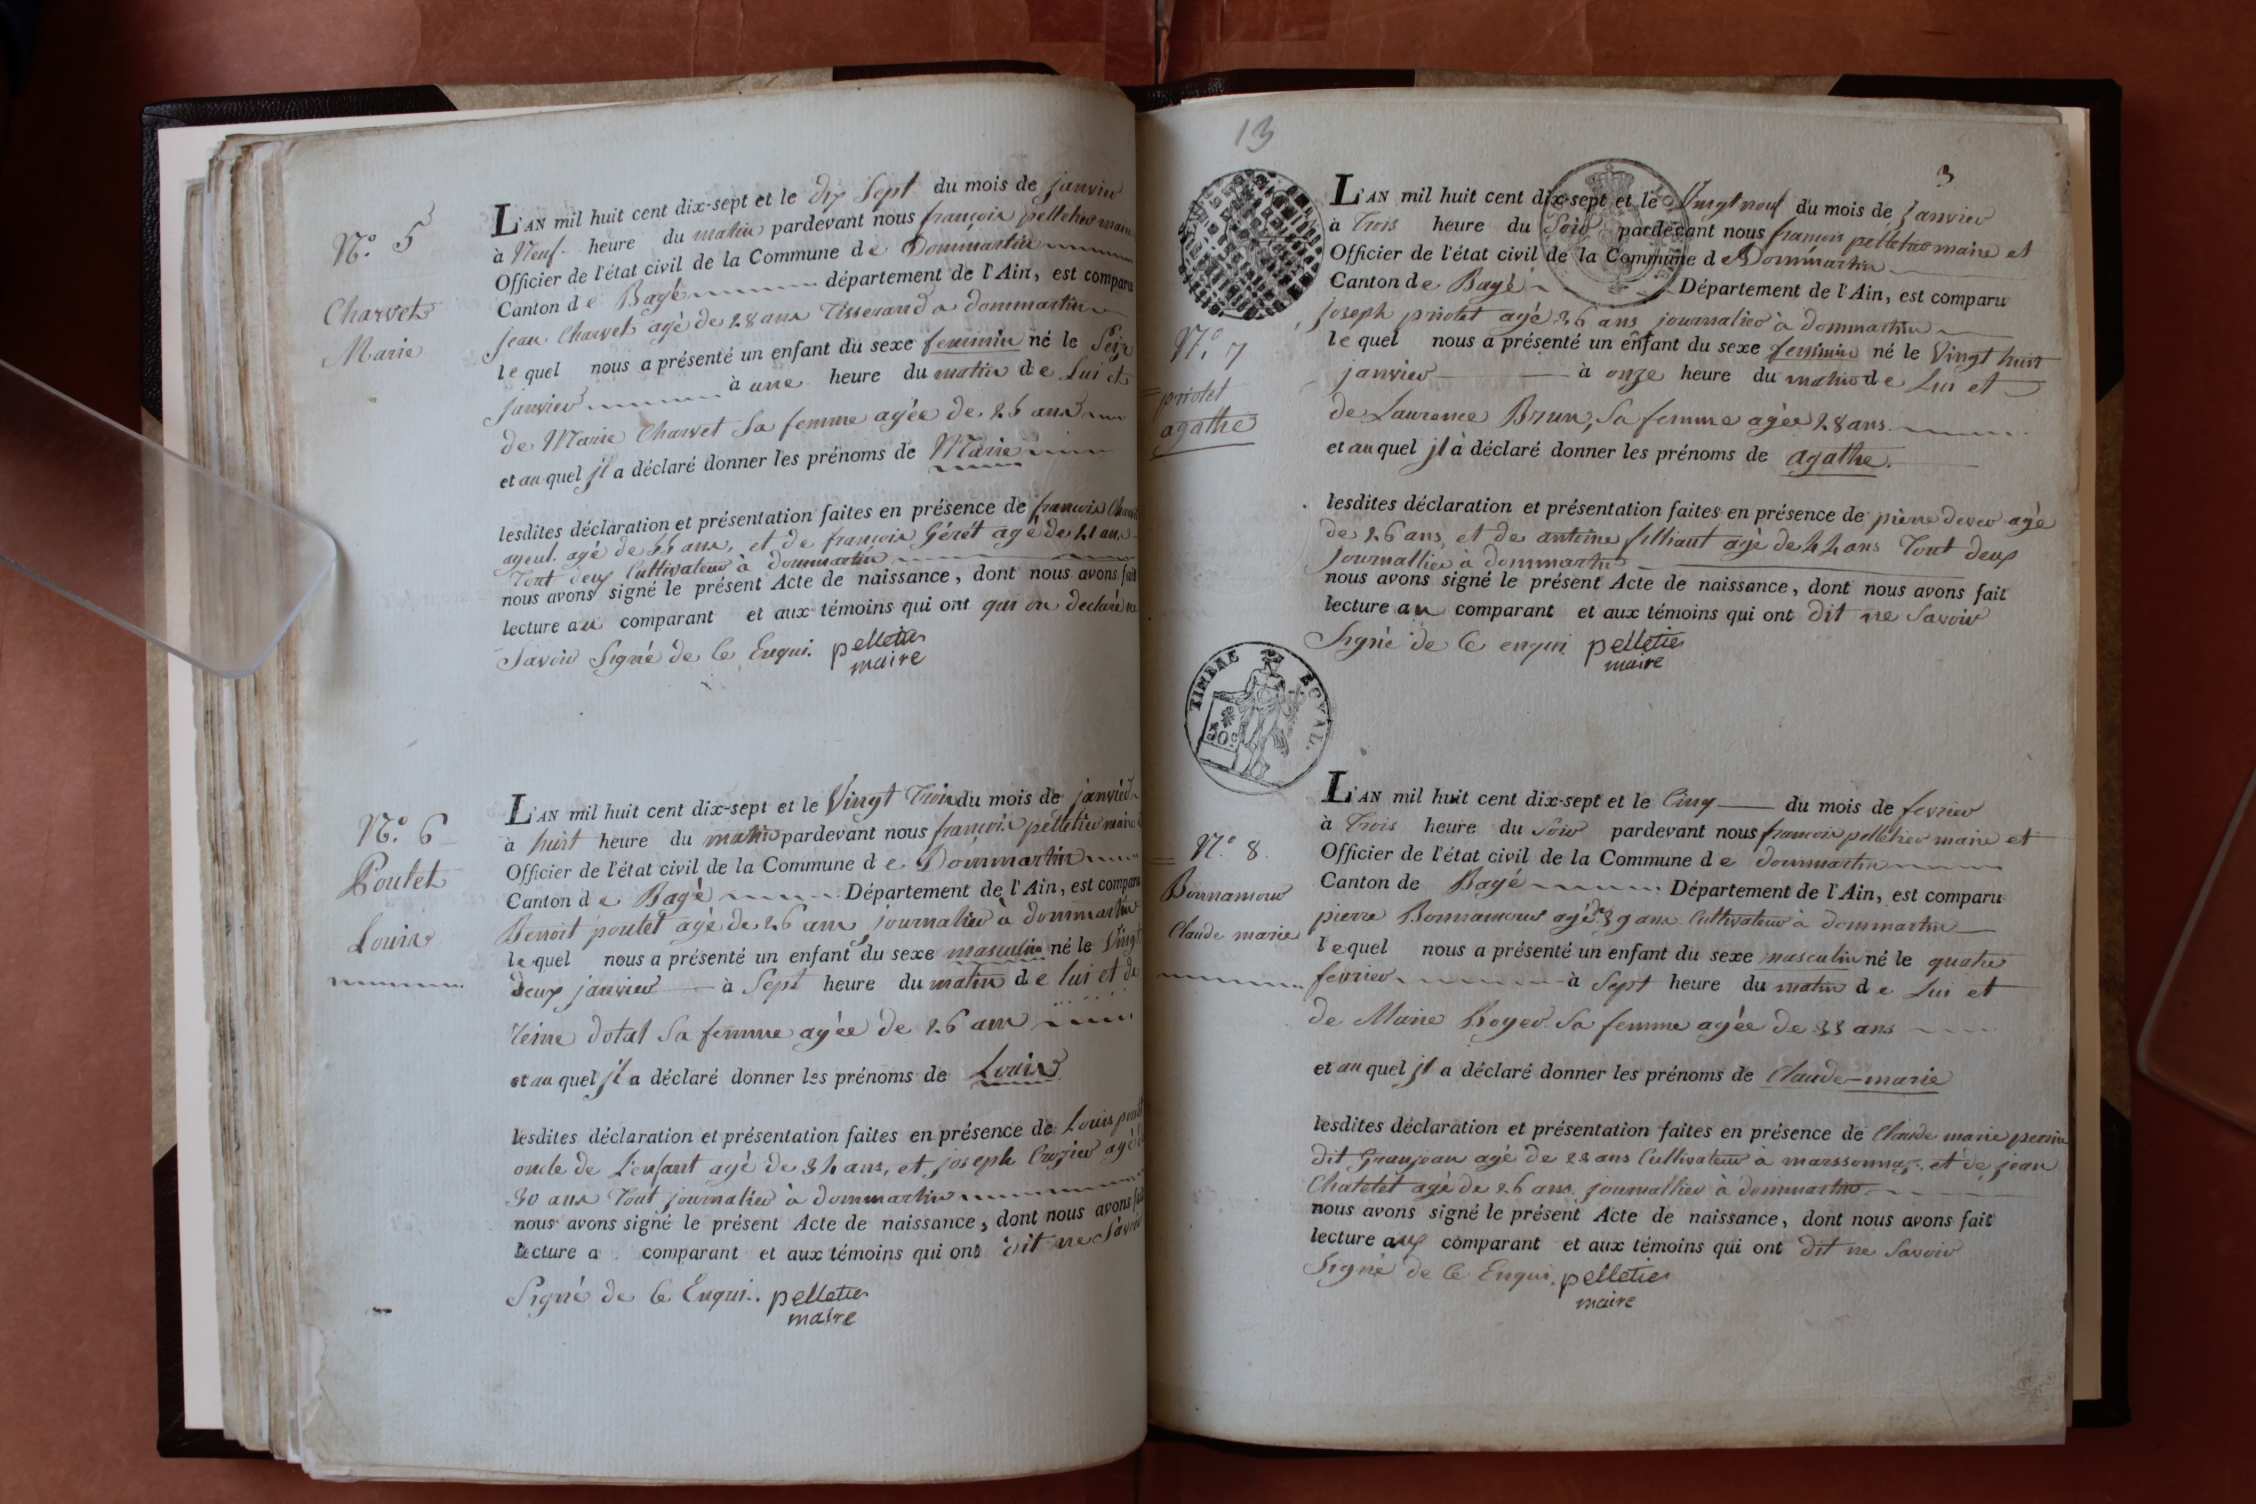 N.º 5
Charvet
Marie
L'AN mil huit cent dix-sept et le dix Sept du mois de janvier
à Neuf heure du matin pardevant nous françois pelletier maire
Officier de l'état civil de la Commune de Dommartin
Canton de Bagé département de l'Ain, est comparu
jean Charvet agé de 28 ans Tisserand a dommartin
lequel nous a présenté un enfant du sexe feminin né le Seize
janvier à une heure du matin de Lui et
de Marie Charvet Sa femme agée de 26 ans
et auquel jl a déclaré donner les prénoms de Marie
lesdites déclaration et présentation faites en présence de françois
ayeul agé de ans, et de françois agé de ans
Tout deux Cultivateur à dommartin
nous avons signé le présent Acte de naissance, dont nous avons fait
lecture au comparant et aux témoins qui ont qui on declaré ne
Savoir Signé de Ce Enqui. pelletier
maire
N.º 6
Poulet
Louis
L'AN mil huit cent dix-sept et le Vingt Trois du mois de janvier
à huit heure du matin pardevant nous françois pelletier maire
Officier de l'état civil de la Commune de Dommartin
Canton de Bagé Département de l'Ain, est comparu
Benoit poulet agé de 26 ans journalier à dommartin
lequel nous a présenté un enfant du sexe masculin né le Vingt
deux janvier à Sept heure du matin de lui et de
dotal Sa femme agée de 26 ans
et auquel jl a déclaré donner les prénoms de Louis
lesdites déclaration et présentation faites en présence de Louis
oncle de L'enfant agé de 34 ans, et joseph Crozier agé
30 ans Tout journalier à dommartin
nous avons signé le présent Acte de naissance, dont nous avons fait
lecture a comparant et aux témoins qui ont dit ne Savoir
Signé de Ce Enqui. pelletier
maire
13
3
N.º 7
priolet
agathe
L'AN mil huit cent dix-sept et le Vingt neuf du mois de Janvier
à Trois heure du Soir pardevant nous françois pelletier maire et
Officier de l'état civil de la Commune de Dommartin
Canton de Bagé Département de l'Ain, est comparu
joseph priolet agé 26 ans journalier à dommartin
lequel nous a présenté un enfant du sexe feminin né le Vingt huit
janvier à onze heure du matin de Lui et
de Laurence Brun, Sa femme agée 28 ans
et auquel jl à déclaré donner les prénoms de agathe.
lesdites déclaration et présentation faites en présence de pierre agé
de 26 ans, et de antoine filliaut agé de 44 ans Tout deux
journallier à dommartin
nous avons signé le présent Acte de naissance, dont nous avons fait
lecture au comparant et aux témoins qui ont dit ne Savoir
Signé de Ce enqui pelletier
maire
TIMBRE ROYAL.
50 c
N.º 8.
Bonnamour
Claude marie
L'AN mil huit cent dix-sept et le Cinq du mois de fevrier
à Trois heure du Soir pardevant nous françois pelletier maire et
Officier de l'état civil de la Commune de dommartin
Canton de Bagé Département de l'Ain, est comparu
pierre Bonnamour agé de 39 ans Cultivateur à dommartin
lequel nous a présenté un enfant du sexe masculin né le quatre
fevrier à Sept heure du matin de Lui et
de Marie Boyer Sa femme agée de 33 ans
et auquel jl a déclaré donner les prénoms de Claude-marie
lesdites déclaration et présentation faites en présence de Claude marie perrin
dit Granjean agé de 28 ans Cultivateur a marssonnaz, et de jean
Chatelet agé de 26 ans journallier à dommartin
nous avons signé le présent Acte de naissance, dont nous avons fait
lecture aux comparant et aux témoins qui ont dit ne Savoir
Signé de Ce Enqui. pelletier
maire